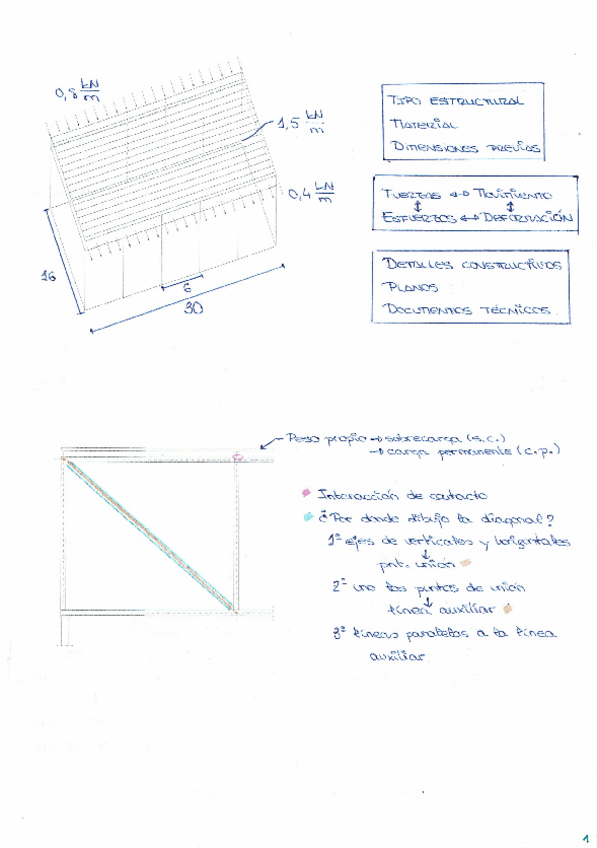 0,8 kN/m
1,5 kN/m
0,4 kN/m
16
6
30
TIPO ESTRUCTURAL
MATERIAL
DIMENSIONES PREVIAS
FUERZAS ↔ MOVIMIENTO
↕ ↕
ESFUERZOS ↔ DEFORMACIÓN
DETALLES CONSTRUCTIVOS
PLANOS
DOCUMENTOS TÉCNICOS.
Peso propio → sobrecarga (s.c.)
→ carga permanente (c.p.)
Interacción de contacto
¿Por donde dibujo la diagonal?
1º ejes de verticales y horizontales
↓
pnt. unión
2º uno los puntos de unión
↓
línea auxiliar
3º líneas paralelas a la línea
auxiliar.
1